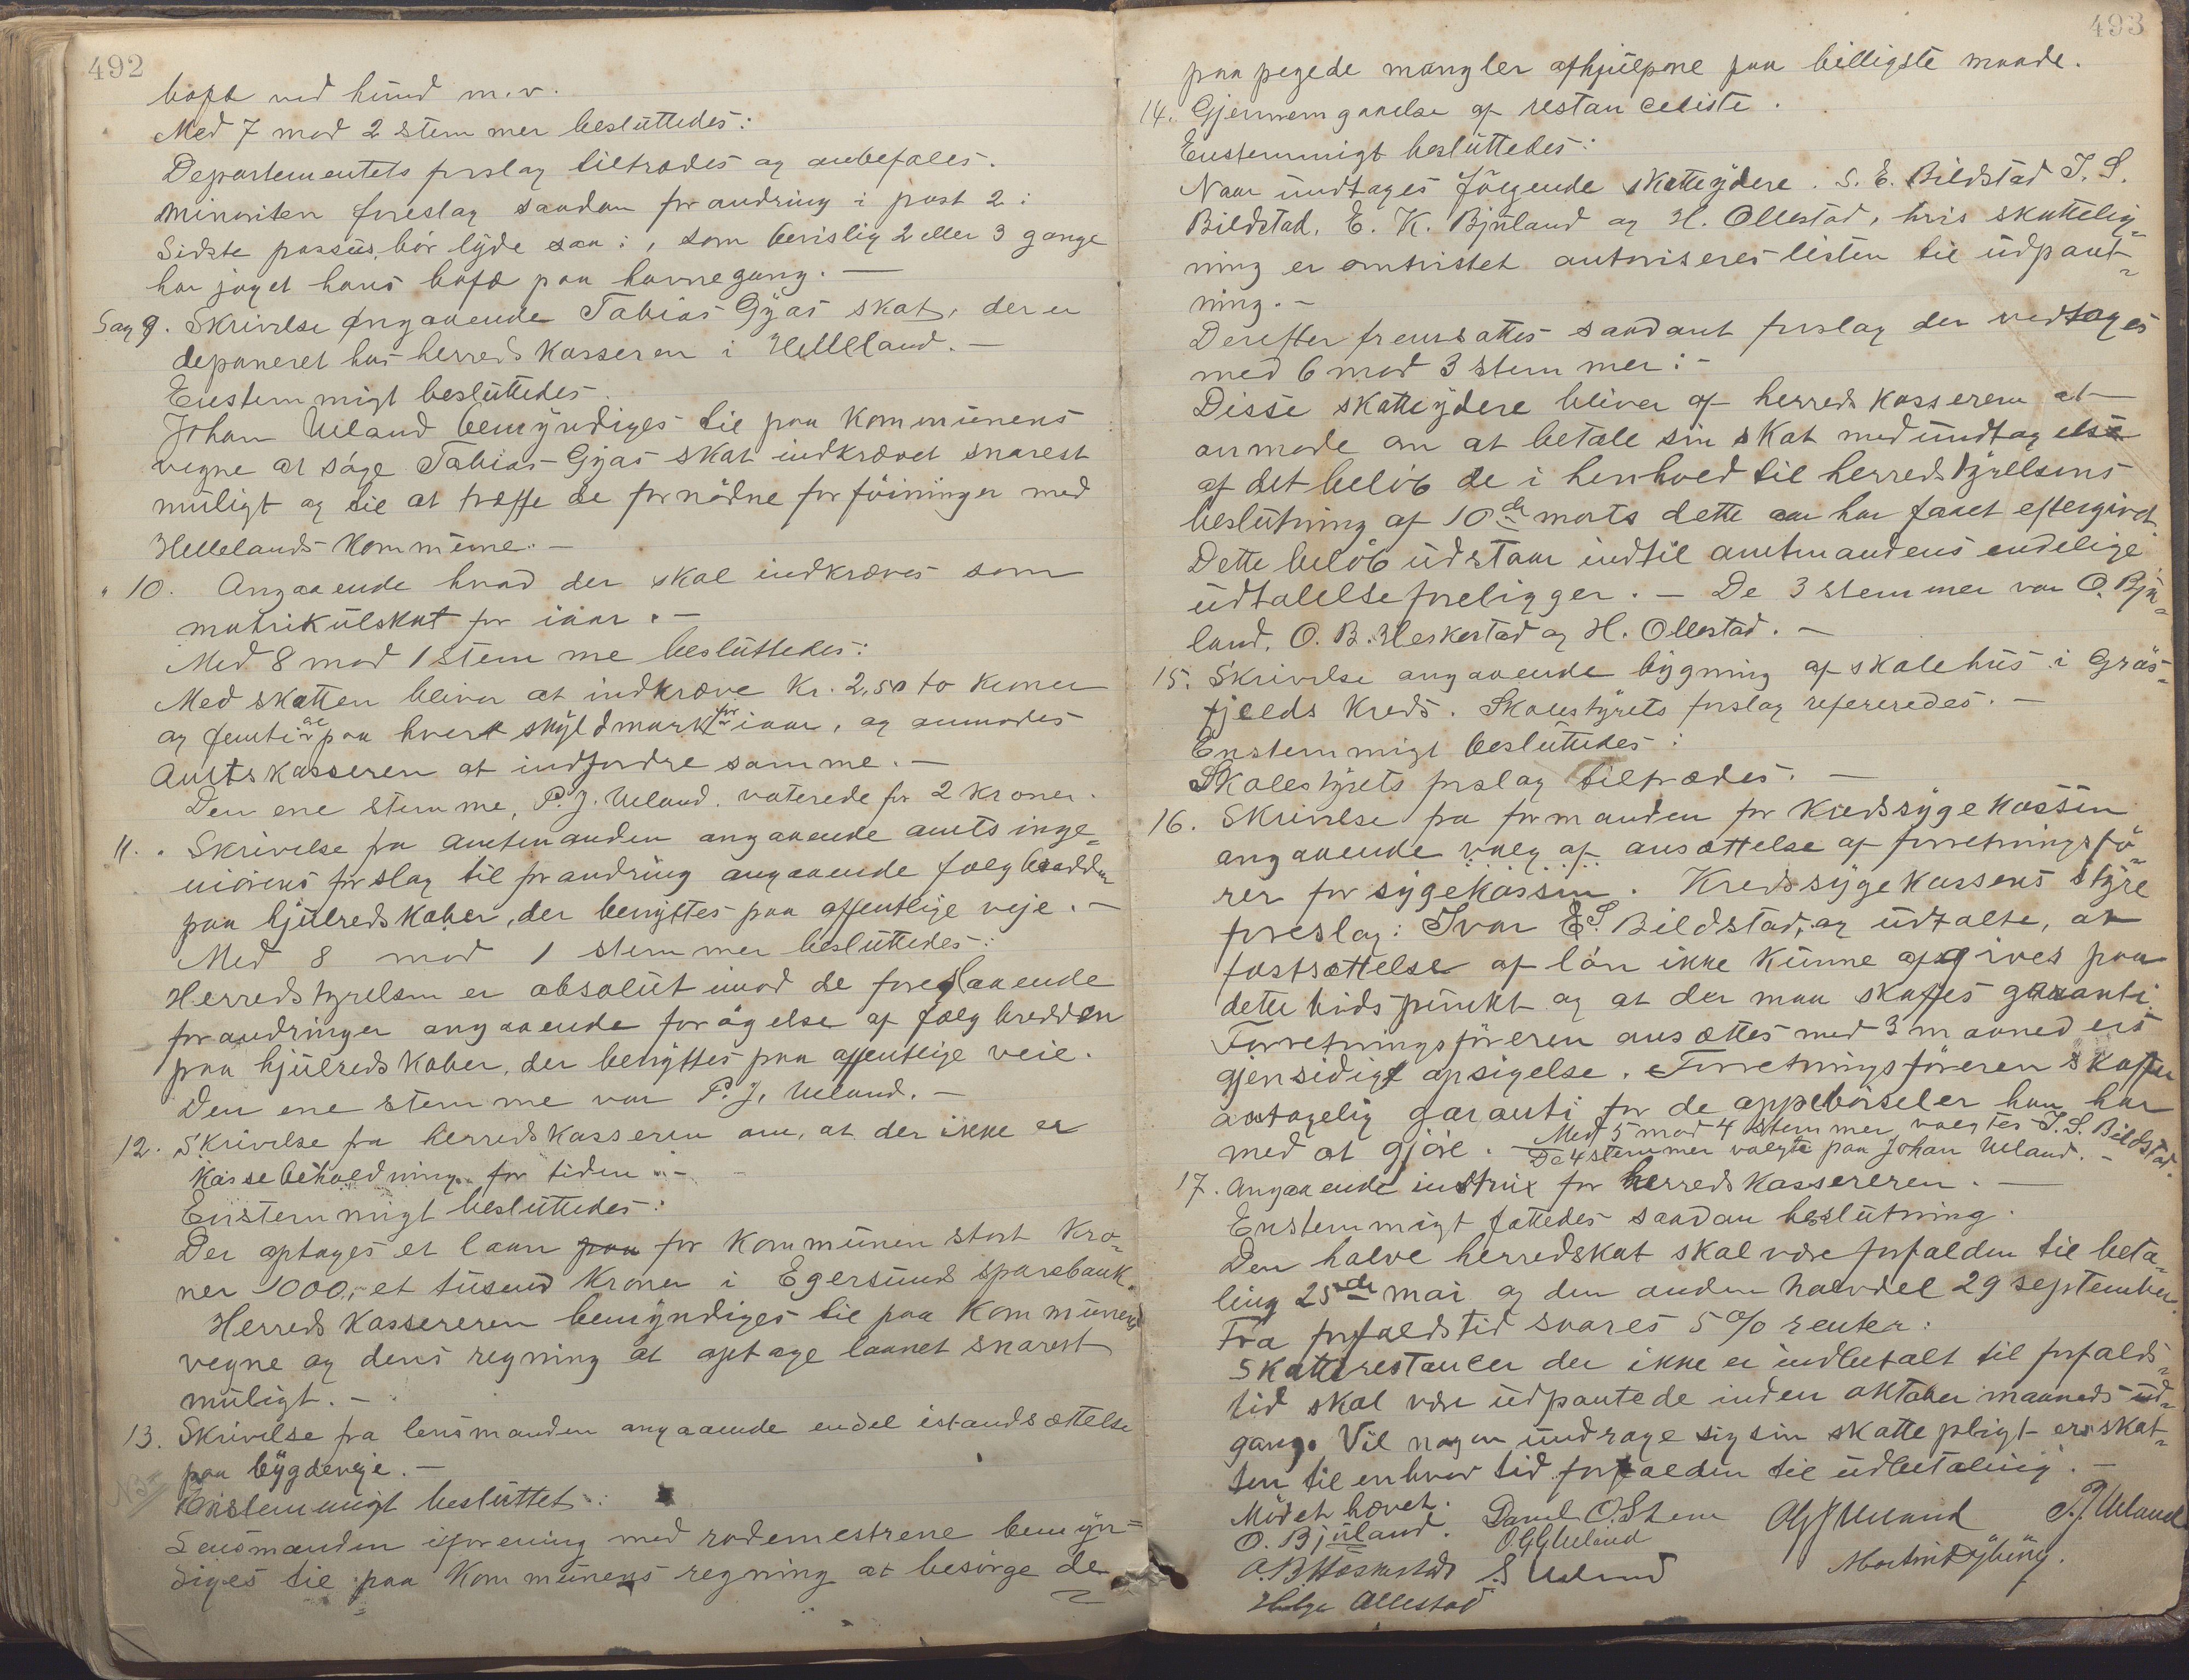 492
bofæ ved hund m.v.
Med 7 mod 2 stemmer besluttedes:
Departementets forslag tiltrædes og anbefales.
Minoriten foreslog saadan forandring i post 2:
Sidste passus bør lyde saa: , som bevislig 2 eller 3 gange
har jaget hans bofæ paa havnegang. —
Sag 9. Skrivelse angaaende Tobias Gyas skat, der er
deponeret hos herredskasseren i Helleland. —
Enstemmigt besluttedes.
Johan Ueland bemyndiges til paa Kommunens
vegne at søge Tobias Gyas skat indkrævet snarest
muligt og til at træffe de fornødne forføininger med
Hellelands Kommune. —
" 10. Angaaende hvad der skal indkræves som
matrikulskat for iaar. —
Med 8 mod 1 stemme besluttedes:
Med skatten bliver at indkræve Kr. 2,50 to kroner
og femti øre paa hvert skyldmark for iaar, og anmodes
Amtskasseren at indfordre samme. —
Den ene stemme, P. J. Ueland. voterede for 2 kroner.
11. " Skrivelse fra Amtmanden angaaende amtsinge-
niørens forslag til forandring angaaende fælgbredden
paa hjulredskaber, der benyttes paa offentlige veje. —
Med 8 mod 1 stemmer besluttedes:
Herredstyrelsen er absolut imod de foreslaaende
forandringer angaaende forøgelse af fælgbredden
paa hjulredskaber, der benyttes paa offentlige veie.
Den ene stemme var P. J. Ueland. —
12. Skrivelse fra herredskasseren om, at der ikke er
Kassebeholdning for tiden. —
Enstemmigt besluttedes:
Der optages et laan paa for Kommunen stort Kro-
ner 1000,- et tusend Kroner i Egersunds sparebank.
Herredskassereren bemyndiges til paa Kommunens
vegne og dens regning at optage laanet snarest
muligt. —
13. Skrivelse fra lensmanden angaaende endel istandsættelse
paa bygdeveje. —
Enstemmigt besluttet:
Lensmanden iforening med rodemestrene bemyn-
diges til paa Kommunens regning at besørge de
493
paapegede mangler afhjulpne paa billigste maade.
14. Gjennemgaaelse af restanceliste.
Enstemmigt besluttedes:
Naar undtages følgende skatteydere. S. E. Bildstad I. S.
Bildstad, E. K. Bjuland og H. Ollestad, hvis skattelig-
ning er omtvistet autoriseres listen til udpant-
ning. —
Derefter fremsattes saadant forslag der vedtages
med 6 mod 3 stemmer: -
Disse skatteydere bliver af herredskasseren at
anmode om at betale sin skat med undtagelse
af det beløb de i henhold til herredstyrelsens
beslutning af 10de marts dette aar har faaet eftergivet.
Dette beløb udstaar indtil amtmandens endelige
udtalelse foreligger. — De 3 stemmer var O. Bju-
land, O. B. Heskestad og H. Ollestad. —
15. Skrivelse angaaende bygning af skolehus i Gräs-
fjelds Kreds. Skolestyrets forslag refereredes. —
Enstemmigt besluttedes:
Skolestyrets forslag tiltrædes. —
16. Skrivelse fra formanden for Kredssygekassen
angaaende valg af ansættelse af forretningsfø-
rer for sygekassen. Kredssygekassens styre
foreslog: Ivar E. S. Bildstad, og udtalte, at
fastsættelse af løn ikke kunne afgives paa
dette tidspunkt og at der maa skaffes garanti.
Forretningsføreren ansættes med 3 maaneders
gjensidigt opsigelse. Forretningsføreren skaffer
antagelig garanti for de oppebørseler han har
med at gjøre. — Med 5 mod 4 stemmer valgtes I. S. Bildstad.
De 4 stemmer valgte paa Johan Ueland. —
17. Angaaende instrux for herredskassereren. —
Enstemmigt fattedes saadan beslutning.
Den halve herredskat skal være forfalden til beta-
ling 25de mai og den anden halvdel 29 september.
Fra forfaldstid svares 5 % renter.
Skatterestancer der ikke er indbetalt til forfalds-
tid skal være udpantede inden oktober maaneds ud-
gang. Vil nogen undrage sig sin skattepligt er skat-
ten til enhver tid forfalden til udbetaling. —
Mødet hævet.
O. Bjuland. Daniel O. Skem Ueland P. J. Ueland
O. G. Ueland
O. B. Heskestad S. Ueland Martin Dybing.
Helge Ollestad